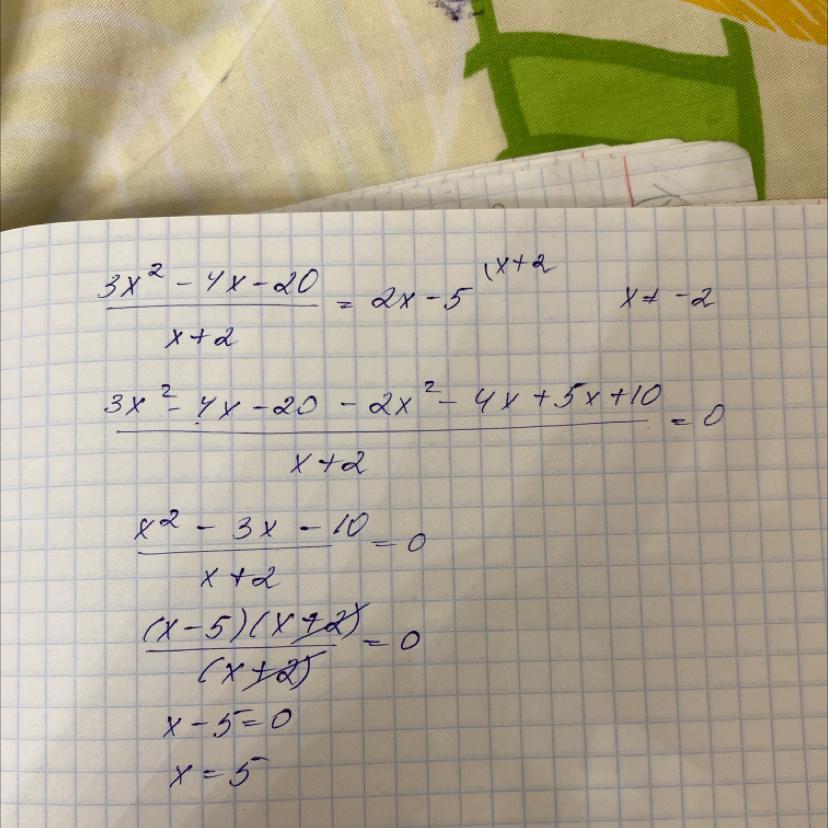 (3x² - 4x - 20)/(x + 2) = 2x - 5 (x+2 x ≠ -2
(3x² - 4x - 20 - 2x² - 4x + 5x + 10)/(x + 2) = 0
(x² - 3x - 10)/(x + 2) = 0
((x - 5)(x + 2))/((x + 2)) = 0
x - 5 = 0
x = 5